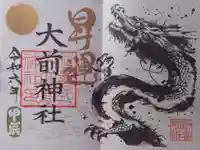 昇龍
大前神社
令和六年
甲辰